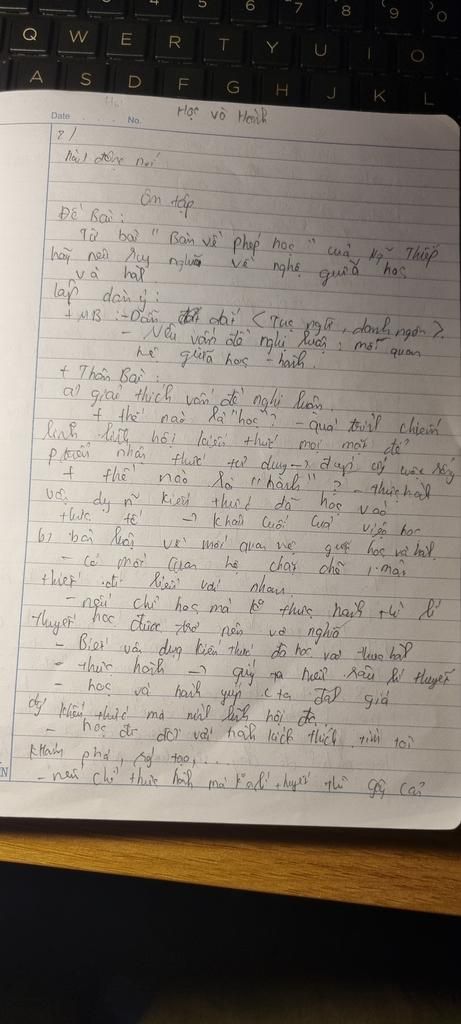 4 5 6 7 8 9 0
Q W E R T Y U I O
A S D F G H J K L
Học và Hành
Date No.
Ôn tập
Đề Bài:
Từ bài "Bàn về phép học" của Ng~ Thiếp
hãy nêu suy nghĩ về nghệ giữa học
và hành
lập dàn ý:
+ MB: - Dẫn dắt (Tục ngữ, danh ngôn).
- Nêu vấn đề nghị luận: mối quan
hệ giữa học - hành.
+ Thân Bài:
a) giải thích vấn đề nghị luận.
+ thế nào là "học"? - quá trình chiếm
lĩnh lĩnh hội kiến thức mọi mặt để
nhận thức tư duy → cuộc sống
+ thế nào là "hành"? - thực hành
vận dụng kiến thức đã học vào
thực tế → khâu cuối của việc học
b) bàn luận về mối quan hệ giữa học và hành
- có mối quan hệ chặt chẽ, mật
thiết đi liền với nhau.
- nếu chỉ học mà ko thực hành thì lí
thuyết học được trở nên vô nghĩa
- Biết vận dụng kiến thức đã học vào thực hành
- thực hành → giúp ta hiểu sâu lí thuyết
- học và hành giúp cta đánh giá
kiến thức mà mình lĩnh hội đc.
- học đi đôi với hành kích thích, tìm tòi
khám phá, sáng tạo,...
- nếu chỉ thực hành mà ko lí thuyết thì gây cản